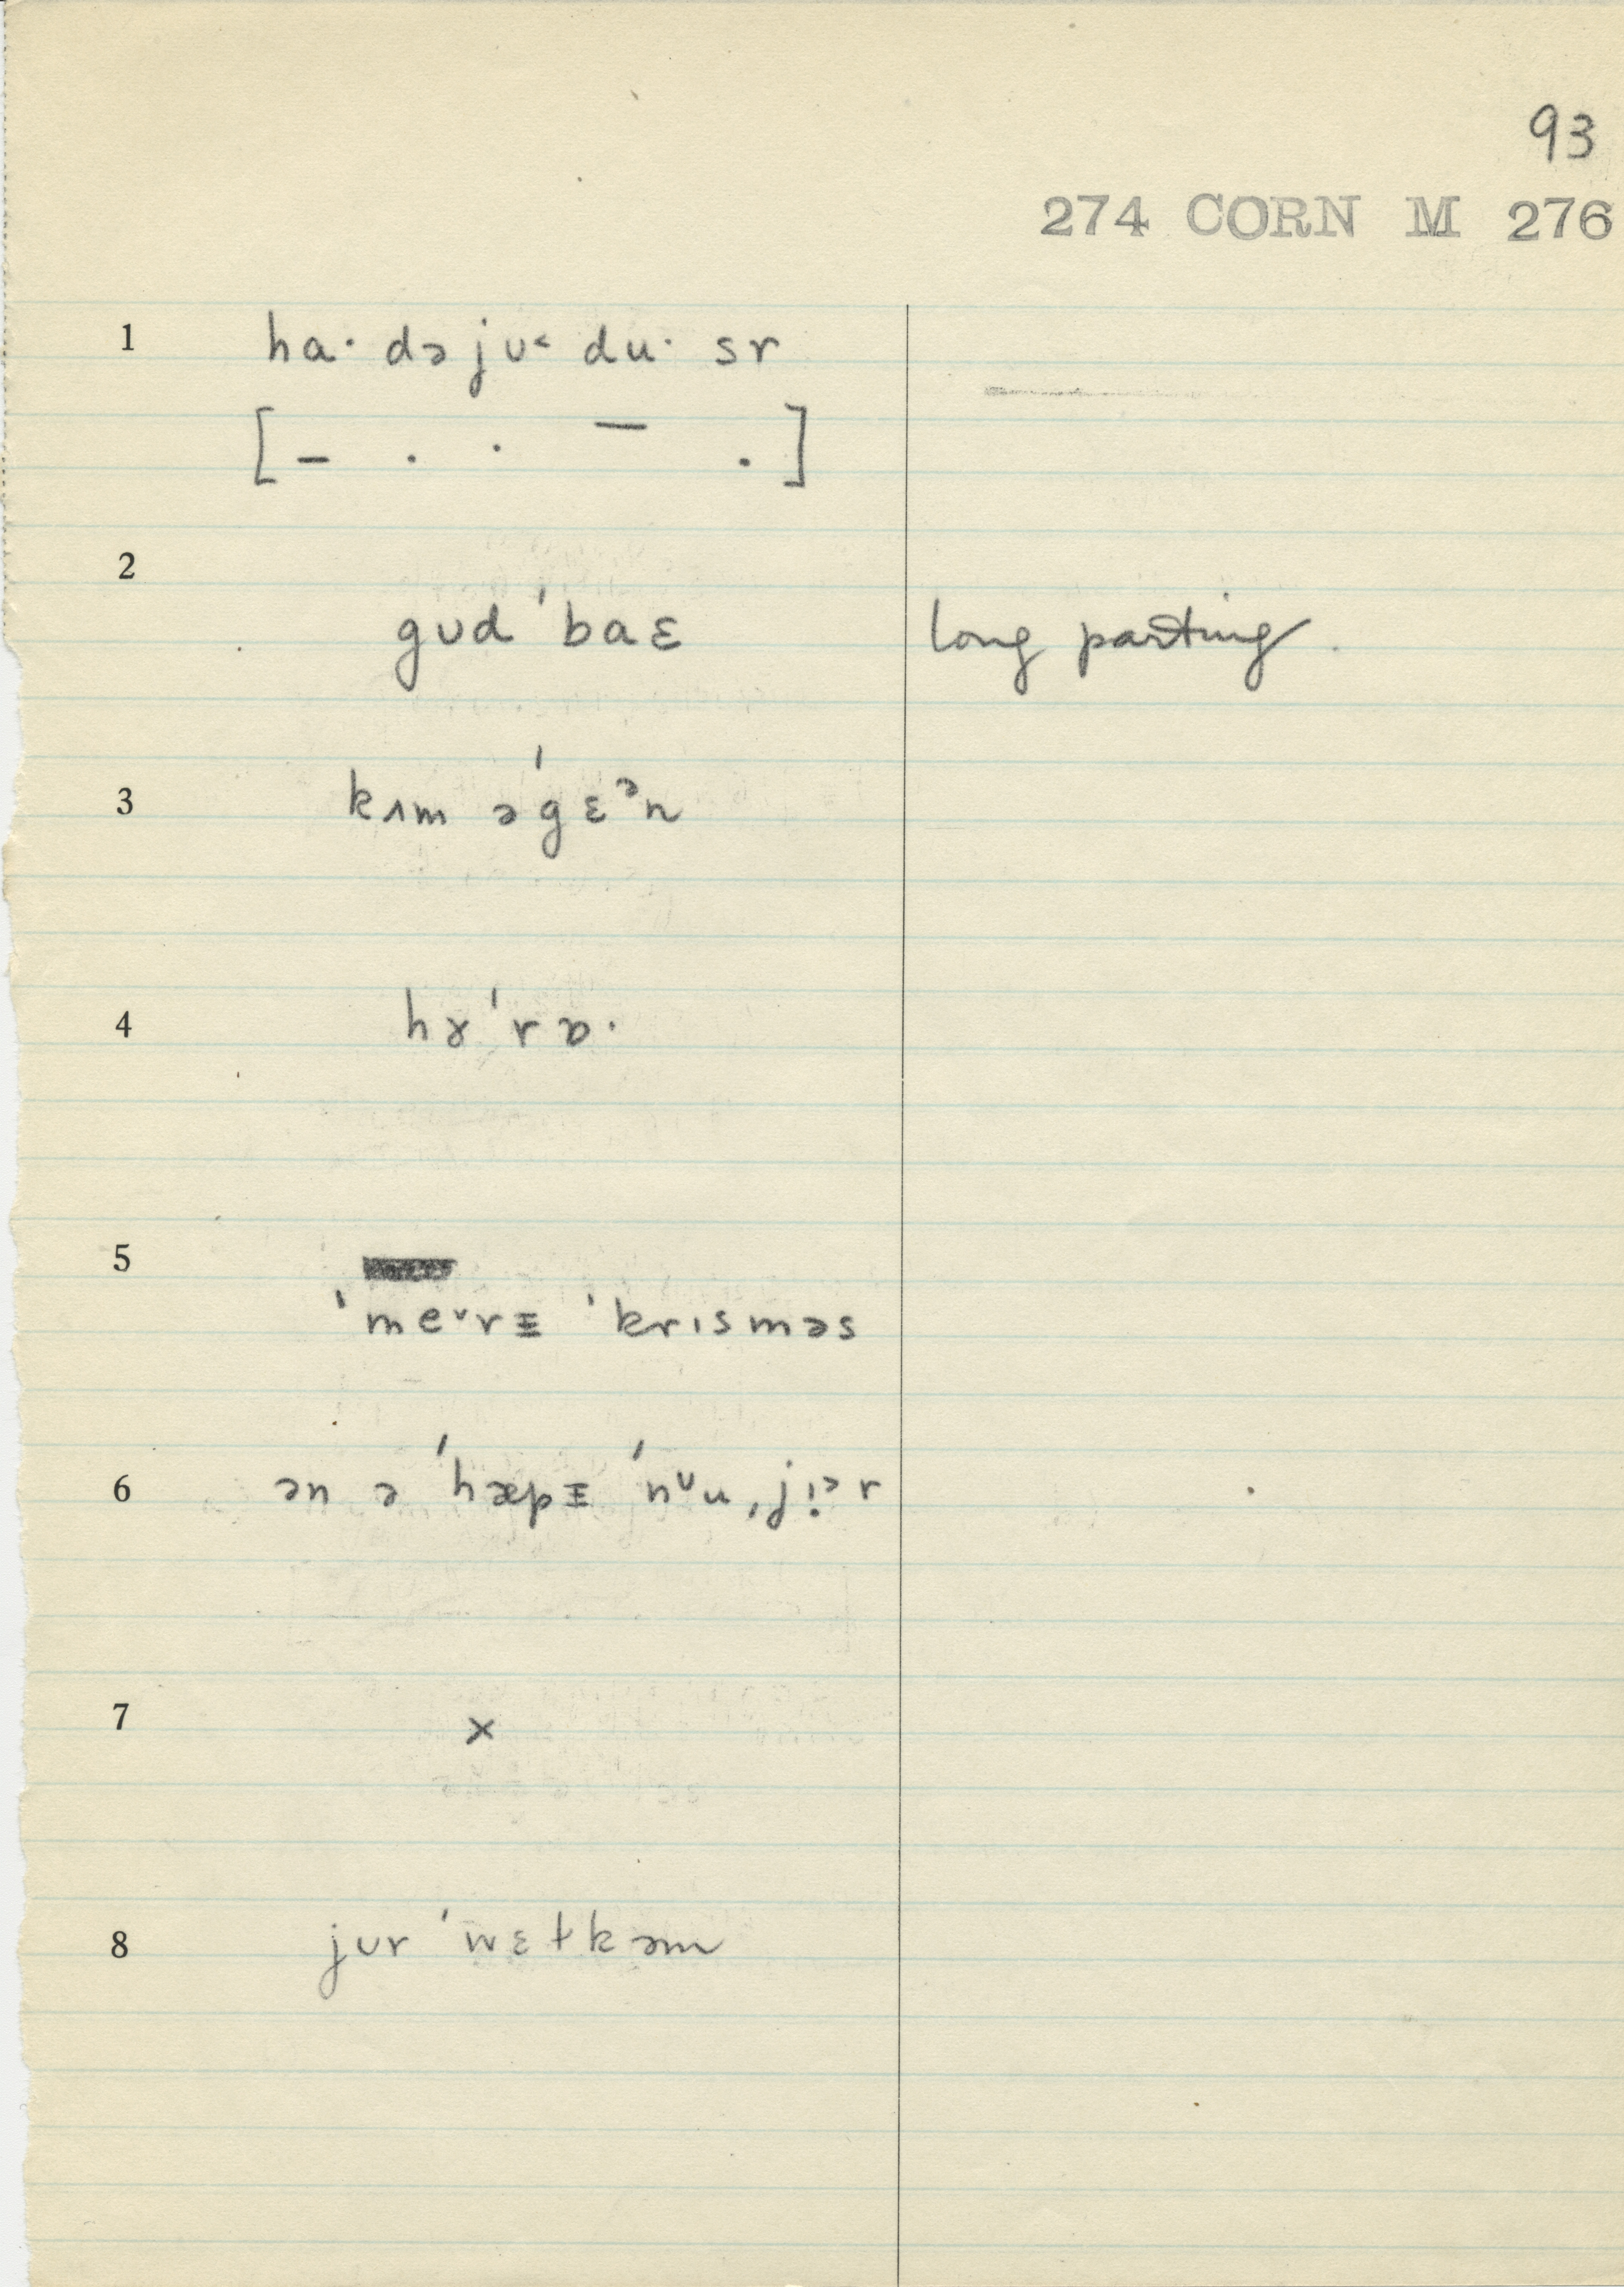 93
274 CORN M 276
1 haˑ dəjʊ˂ duˑ sr
[– . . – .]
2
gʊd ˈbaɛ long parting.
3 kʌm əˈgɛᵊn
4 hɤˈrɒˑ
5
ˈmeˇrɪ ˈkrɪsməs
6 ən ə ˈhæpɪ ˈnᶷu ˌji̙ᵊr
7 x
8 jʊr ˈwɛɫkəm